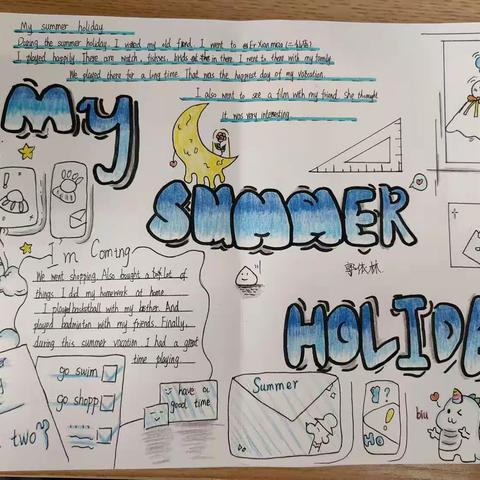 My summer holiday
During the summer holiday, I visited my old friend. I went to
I played happily. There are watch, fishes, birds in there. I went to there with my family.
We played there for a long time. That was the happiest day of my vacation.
I also went to see a film with my friend. She thought
it was very interesting.
My
SUMMER
HOLIDA
I'm Coming
We went shopping. Also bought a lot of
things. I did my homework at home.
I played basketball with my bother. And
played badminton with my friends. Finally,
during this summer vacation I had a great
time playing.
李依林
go swim
go shopp
two
have a
good time
Summer
Ho
biu